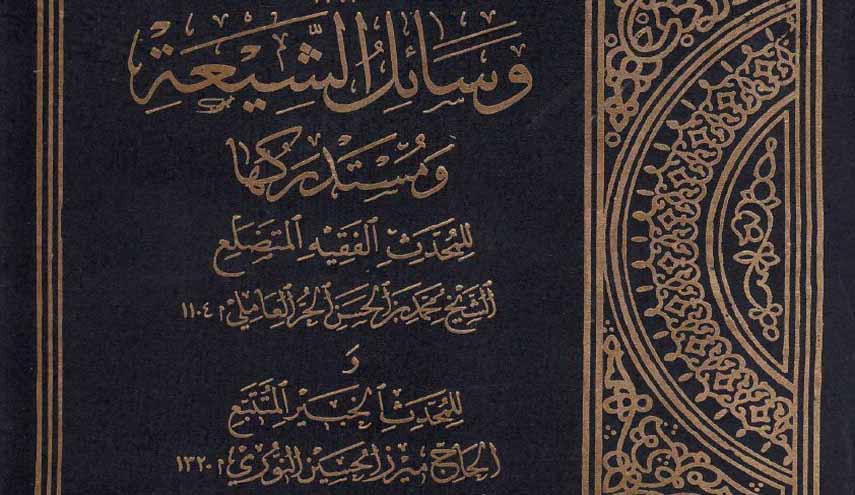 وَسَائِلُ الشِّيعَةِ
وَمُسْتَدْرَكُهَا
للمحدث الفقيه المتضلع
الشيخ محمد بن الحسن الحر العاملي ١١٠٤
و
للمحدث الخبير المتتبع
الحاج ميرزا حسين النوري ١٣٢٠